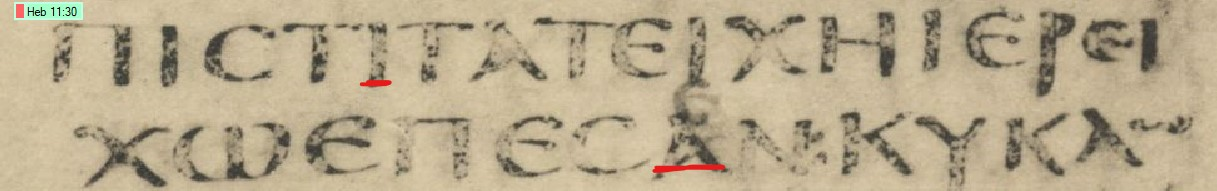 Heb 11:30
ΠΙϹΤΙΤΑΤΕΙΧΗΙΕΡΕΙ
ΧΩΕΠΕϹΑΝΚΥΚΛω